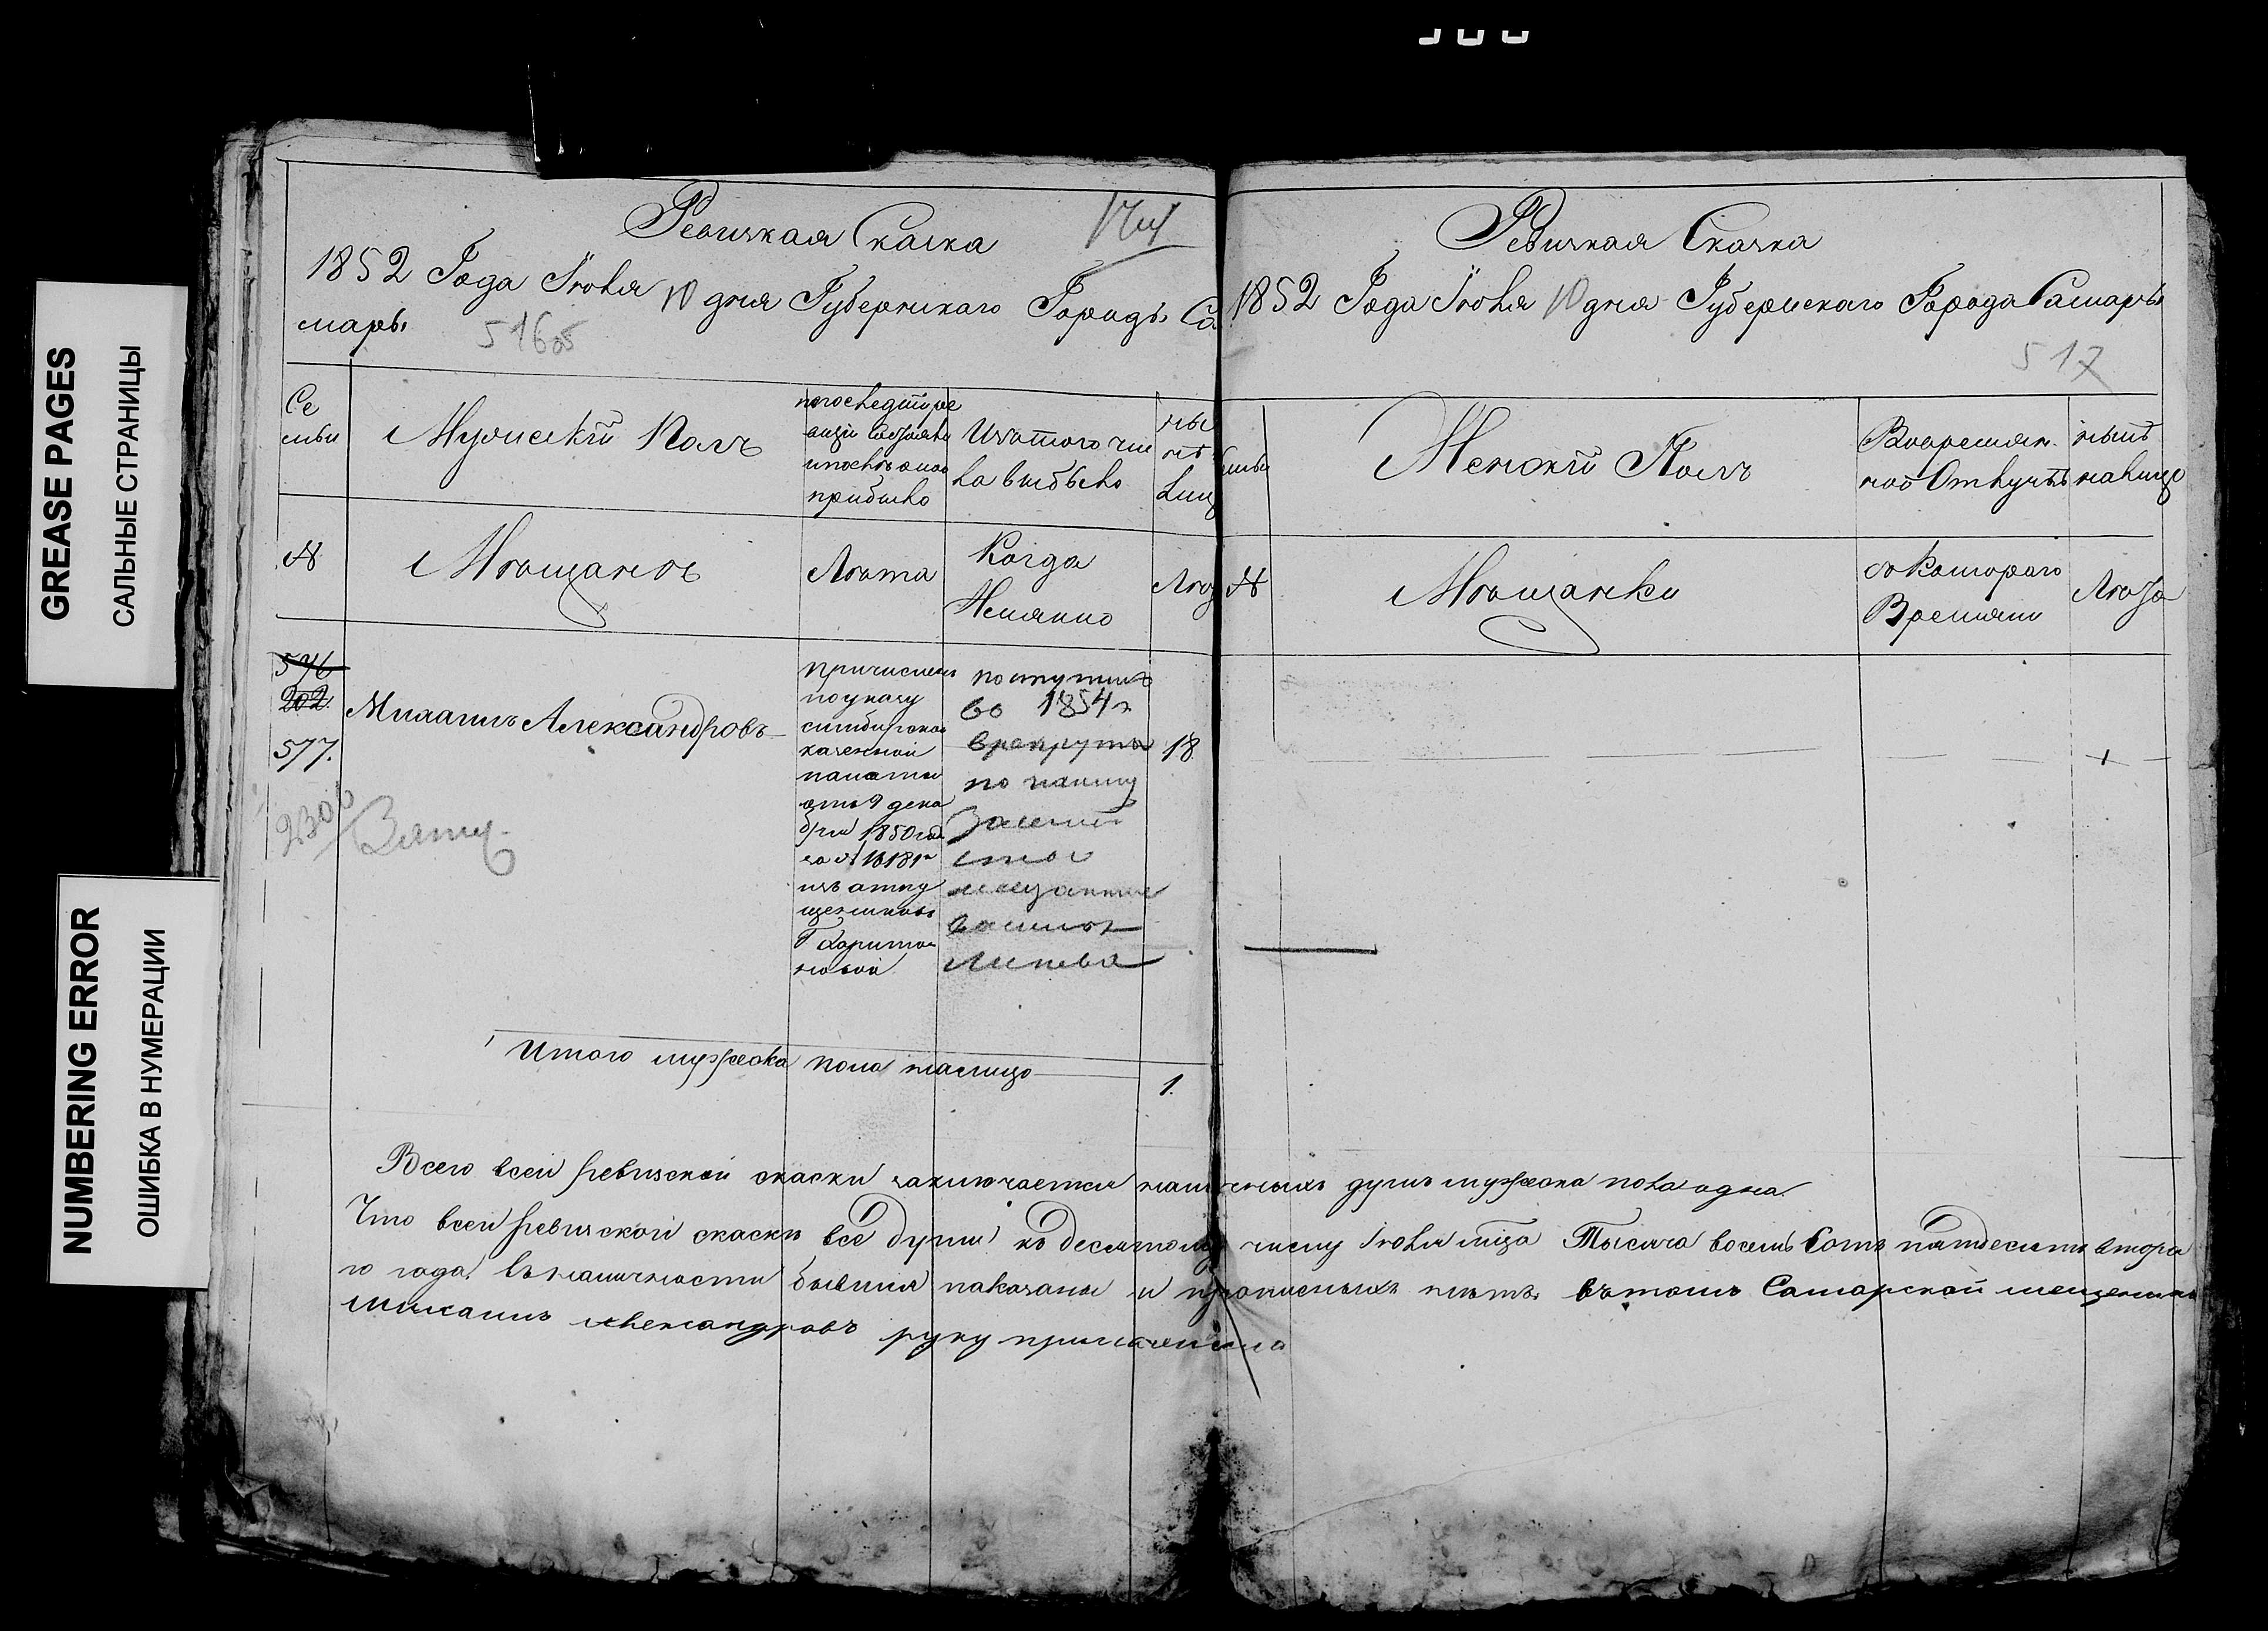 GREASE PAGES
САЛЬНЫЕ СТРАНИЦЫ
NUMBERING ERROR
ОШИБКА В НУМЕРАЦИИ
Ревизкая Скаска
1852 Года Іюня 10 дня Губернскаго Города Са
мары
516
Се
мьи
Мужеский Полъ
прибыло
Изъ того чи
сла выбыло
№
Мѣщанъ
Лѣта
Когда
Имянно
Лѣта
576
202
577.
Михаилъ Александровъ
причисленъ
по указу
симбирской
казенной
палаты
отъ 9 дека
бря 1850 года
за № 16181
изъ отпу
щенниковъ
Г Харито
новой
поступилъ
во 1854 г
в рекруты
по найму
за
18
Итого мужеска пола налицо
1.
Ревизкая Сказка
1852 Года Іюня 10 дня Губернскаго Города Самары
517
мьи
Женский Полъ
Во времян
ной Отлучкѣ
налицо
№
Мѣщанки
съ Котораго
Времяни
Лѣта
Всего в сей ревизской скаски заключается наличныхъ душъ мужеска пола одна.
Что в сей ревизской скаски все души къ десятому числу Іюня мца Тысяча восемь Сотъ пятдесятъ втора
го года в наличности бывшия показаны и прописныхъ нетъ. въ томъ Самарской мещенинъ
Михаилъ Александровъ руку приложила